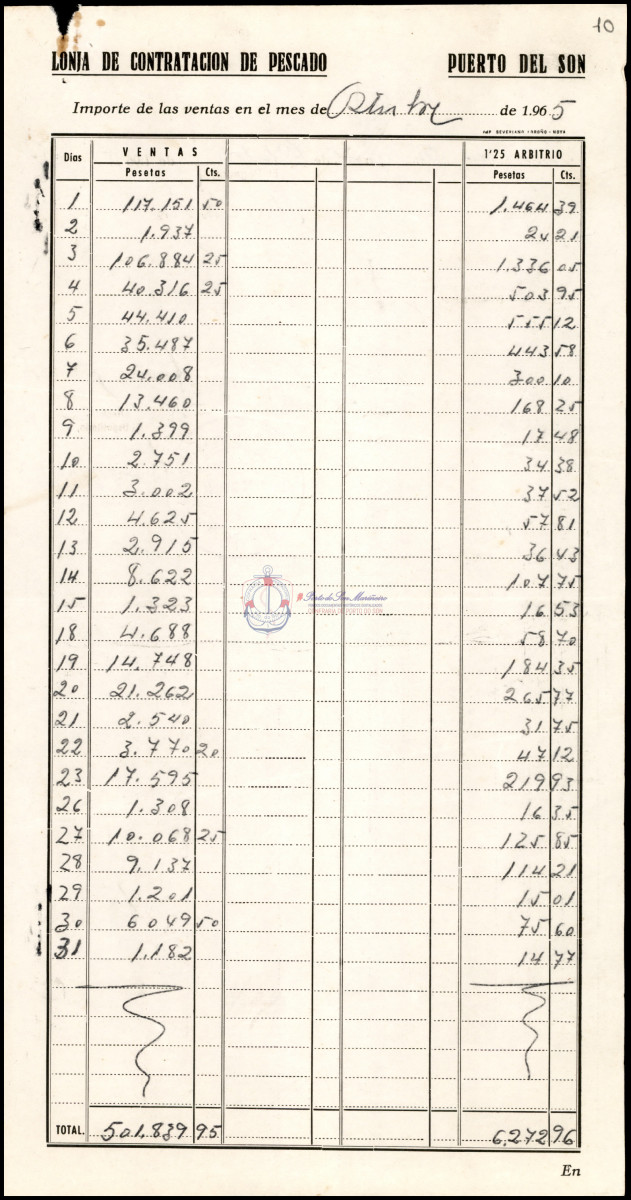 10
LONJA DE CONTRATACION DE PESCADO PUERTO DEL SON
Importe de las ventas en el mes de Octubre de 1.965
Días VENTAS 1'25 ARBITRIO
Pesetas Cts. Pesetas Cts.
1 117.151 50 1.464 39
2 1.937 24 21
3 106.884 25 1.336 05
4 40.316 25 503 95
5 44.410 555 12
6 35.487 443 58
7 24.008 300 10
8 13.460 168 25
9 1.399 17 48
10 2.751 34 38
11 3.002 37 52
12 4.625 57 81
13 2.915 36 43
14 8.622 107 75
15 1.323 16 53
18 4.688 58 70
19 14.748 184 35
20 21.262 265 77
21 2.540 31 75
22 3.770 20 47 12
23 17.595 219 93
26 1.308 16 35
27 10.068 25 125 85
28 9.137 114 21
29 1.201 15 01
30 6049 50 75 60
31 1.182 14 77
TOTAL. 501.839 95 6.272 96
En